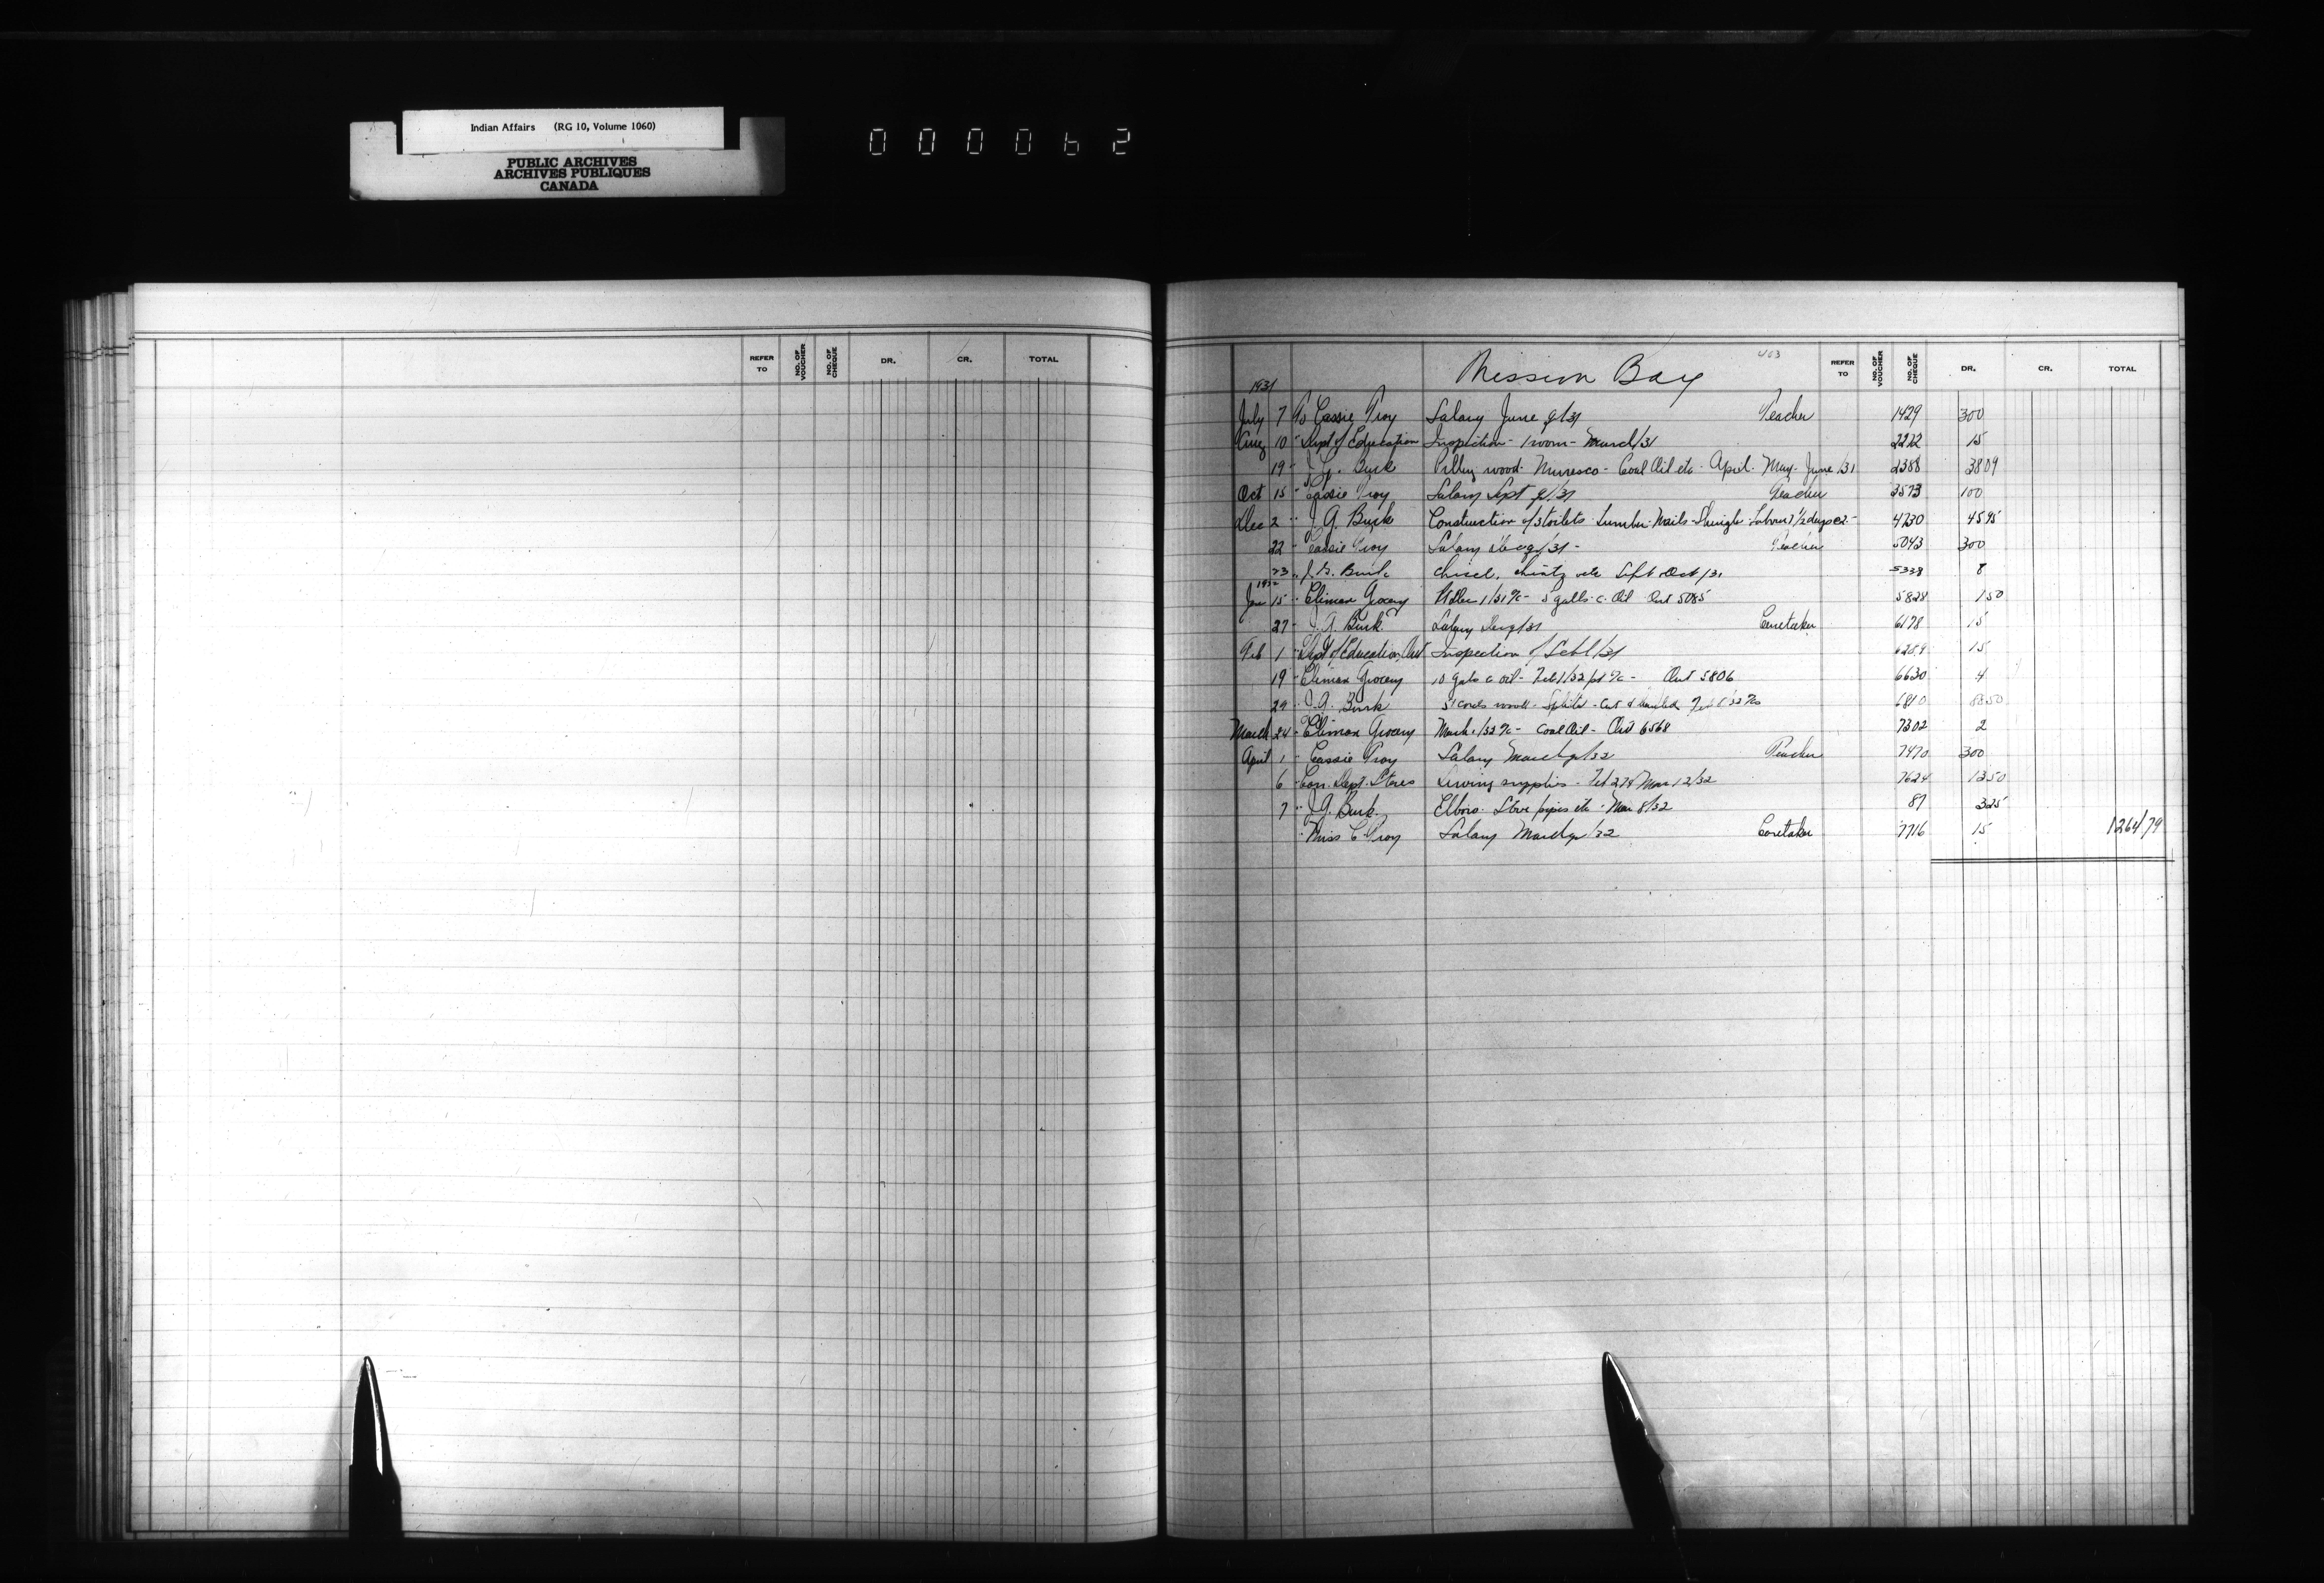 Indian Affairs (RG 10, Volume 1060)
PUBLIC ARCHIVES
ARCHIVES PUBLIQUES
CANADA
000062
REFER TO NO. OF VOUCHER NO. OF CHEQUE DR. CR. TOTAL
463
Mission Bay REFER TO NO. OF VOUCHER NO. OF CHEQUE DR. CR. TOTAL
1931
July 7 To Cassie Troy Salary June q/31 Teacher 1429 300
Aug 10 " Dept of Education Inspection - 1 room - March/31 2272 15
19 " J. G. Burk wood - Muresco - Coal Oil etc - April - May - June/31 2388 3809
Oct 15 " Cassie Troy Salary Sept q/31 Teacher 3573 100
Dec 2 " J. G. Burk Construction of 3 toilets - Lumber - Nails - Shingle - Labour 7 1/2 days 4730 4595
22 " Cassie Troy Salary Dec q/31 - Teacher 5043 300
23 " J. G. Burk Chisel, etc Sept Oct/31 5338 8
1932
Jan 15 " Climax Grocery 1/31 a/c - 5 galls c. Oil 5085 5828 150
27 " J. G. Burk Salary Dec q/31 Caretaker 6178 15
Feb 1 " Dept of Education, Ont Inspection of Schl/31 15
19 " Climax Grocery 10 gals c oil - Feb 1/32 a/c - 5806 6630 4
29 " J. G. Burk cords wood - Split - Cut & hauled Feb /32 6810 8850
March 24 " Climax Grocery March 1/32 a/c - Coal Oil - 6568 7302 2
April 1 " Cassie Troy Salary March q/32 Teacher 7470 300
6 " Con. Dept. Stores Sewing supplies - Feb 27 & Mar 12/32 7624 1350
7 " J. G. Burk Elbow - Stove pipes etc - Mar 8/32 87 325
" Miss C Troy Salary March q/32 Caretaker 7716 15 1264 79